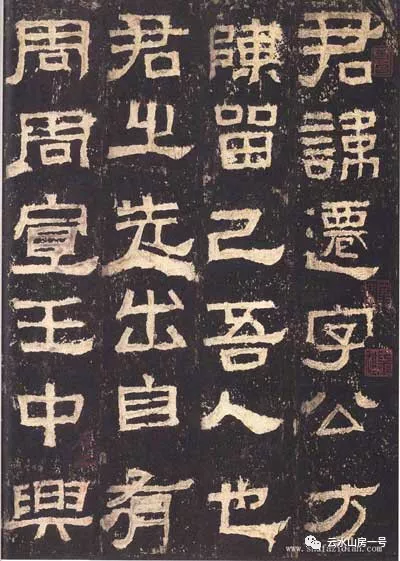 君諱遷字公方
陳留己吾人也
君之先出自有
周周宣王中興
云水山房一号
www.shufazidian.com